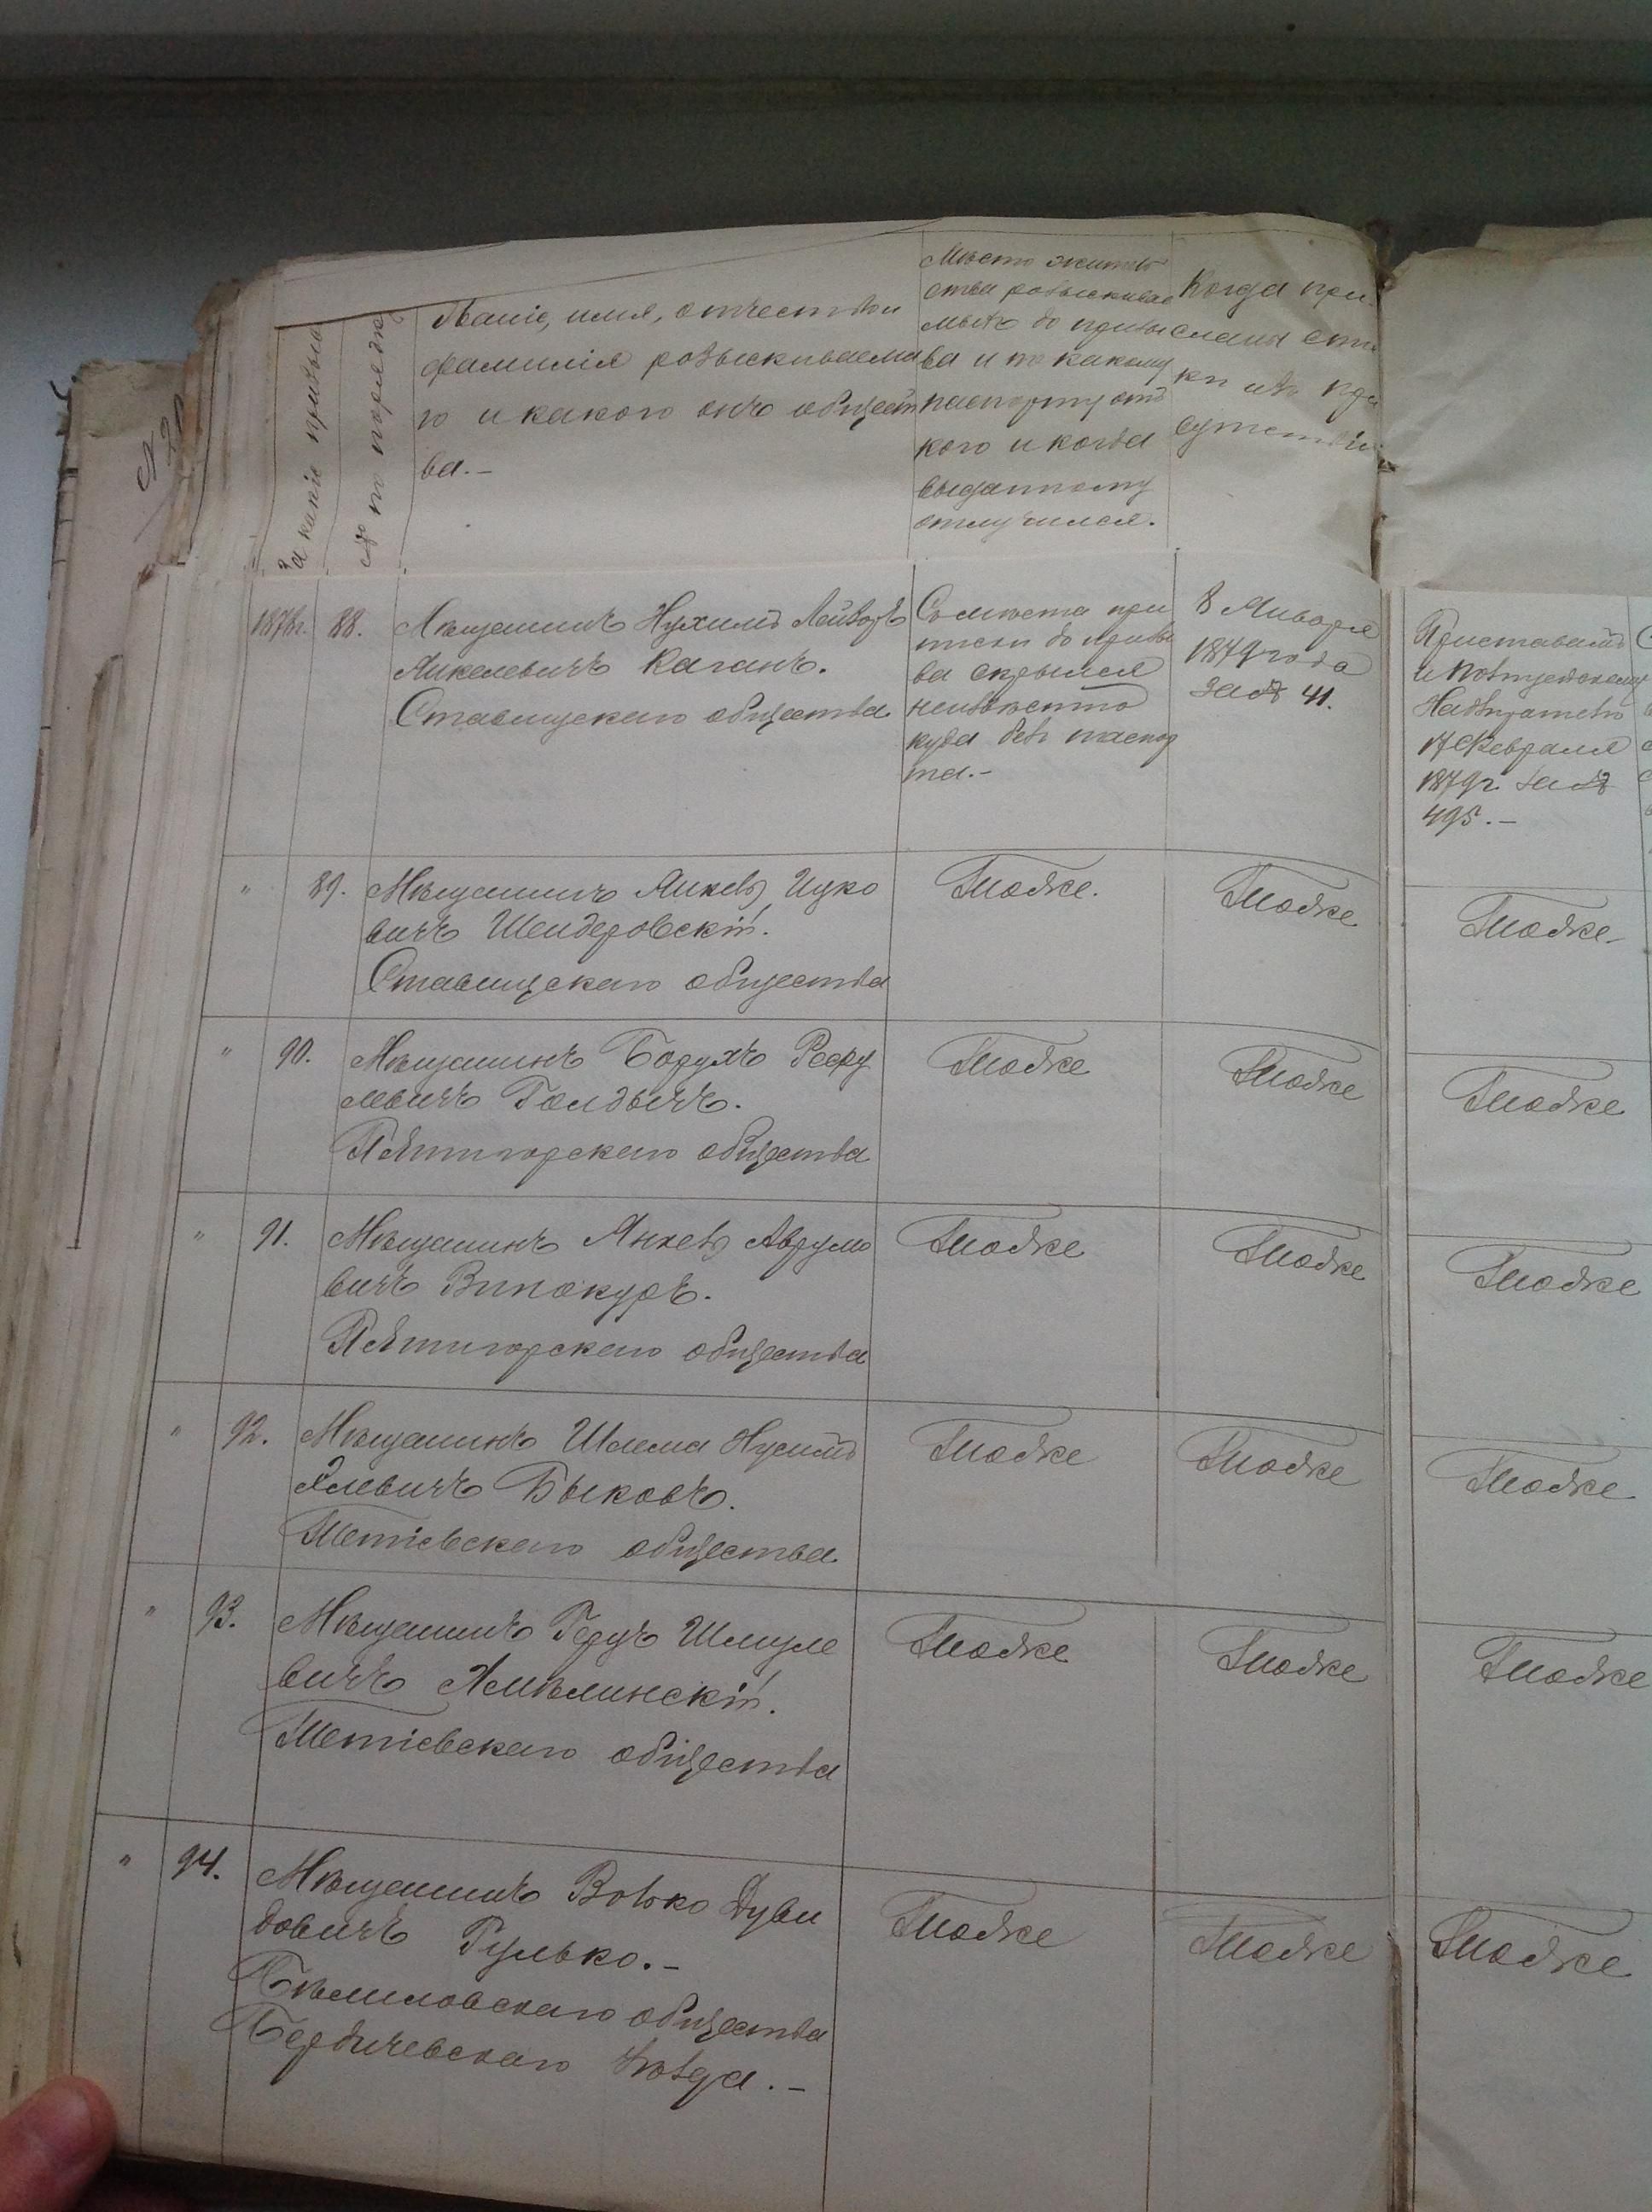 За какой призывъ
№ по порядку
Званіе, имя, отчество и
фамилія розыскиваема
го и какого онъ общест
ва.-
Мѣсто житель
ства розыскивае
мыхъ до призы
ва и по какому
паспорту отъ
кого и когда
выданному
отлучился.
Когда при
сланы спи
ки изъ при
сутствія
1878г.
88.
Мѣщанинъ Нухимъ Лейзоръ
Янкелевичъ Каганъ.
Ставищскаго общества
Съ мѣста при
писки до призы
ва скрылся
неизвѣстно
куда безъ паспор
та.-
8 Января
1879 года
за № 41.
Приставамъ
и Полицейскому
Надзирателю
17 Февраля
1879г. за №
495.-
"
89.
Мѣщанинъ Янкель Ицко
вичъ Шендеровскій.
Ставищскаго общества
Тоже.
Тоже
Тоже-
"
90.
Мѣщанинъ Борухъ
Пятигорскаго общества
Тоже
Тоже
Тоже
"
91.
Мѣщанинъ Янкель Аврумо
вичъ Винокуръ.
Пятигорскаго общества
Тоже
Тоже
Тоже
"
92.
Мѣщанинъ Шлема Нусимъ
Элевичъ Быковъ.
Тетіевскаго общества
Тоже
Тоже
Тоже
"
93.
Мѣщанинъ Герцъ Шмуле
вичъ Хмѣлинскій.
Тетіевскаго общества
Тоже
Тоже
Тоже
"
94.
Мѣщанинъ Волько Дуви
довичъ Гулько.-
Бѣлиловскаго общества
Бердичевскаго уѣзда.-
Тоже
Тоже
Тоже